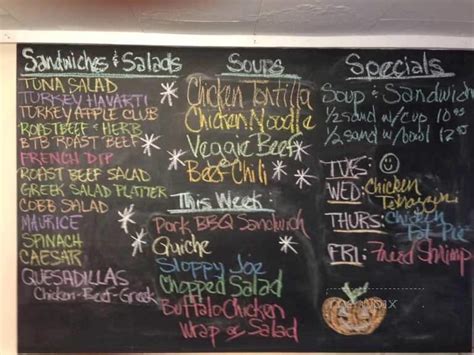 Sandwiches & Salads
TUNA SALAD
TURKEY HAVARTI
TURKEY APPLE CLUB
ROAST BEEF & HERB
BTB ROAST BEEF
FRENCH DIP
ROAST BEEF SALAD
GREEK SALAD PLATTER
COBB SALAD
MAURICE
SPINACH
CAESAR
QUESADILLAS
Chicken-Beef-Greek
Soups
Chicken Tortilla
Chicken Noodle
Veggie Beef
Beef Chili
This Week:
Pork BBQ Sandwich
Quiche
Sloppy Joe
Chopped Salad
Buffalo Chicken
Wrap or Salad
Specials
Soup & Sandwich
1/2 sand w/cup 10.95
1/2 sand w/bowl 12.95
TUES:
WED: Chicken
THURS: Chicken
Pot Pie
FRI: Fried Shrimp